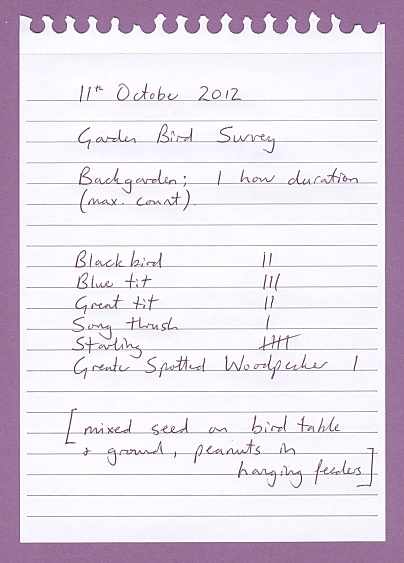 11th October 2012
Garden Bird Survey
Backgarden; 1 hour duration
(max. count).
Blackbird II
Blue tit III
Great tit II
Song thrush I
Starling 卌
Greater Spotted Woodpecker I
[mixed seed on bird table
& ground, peanuts in
hanging feeders]